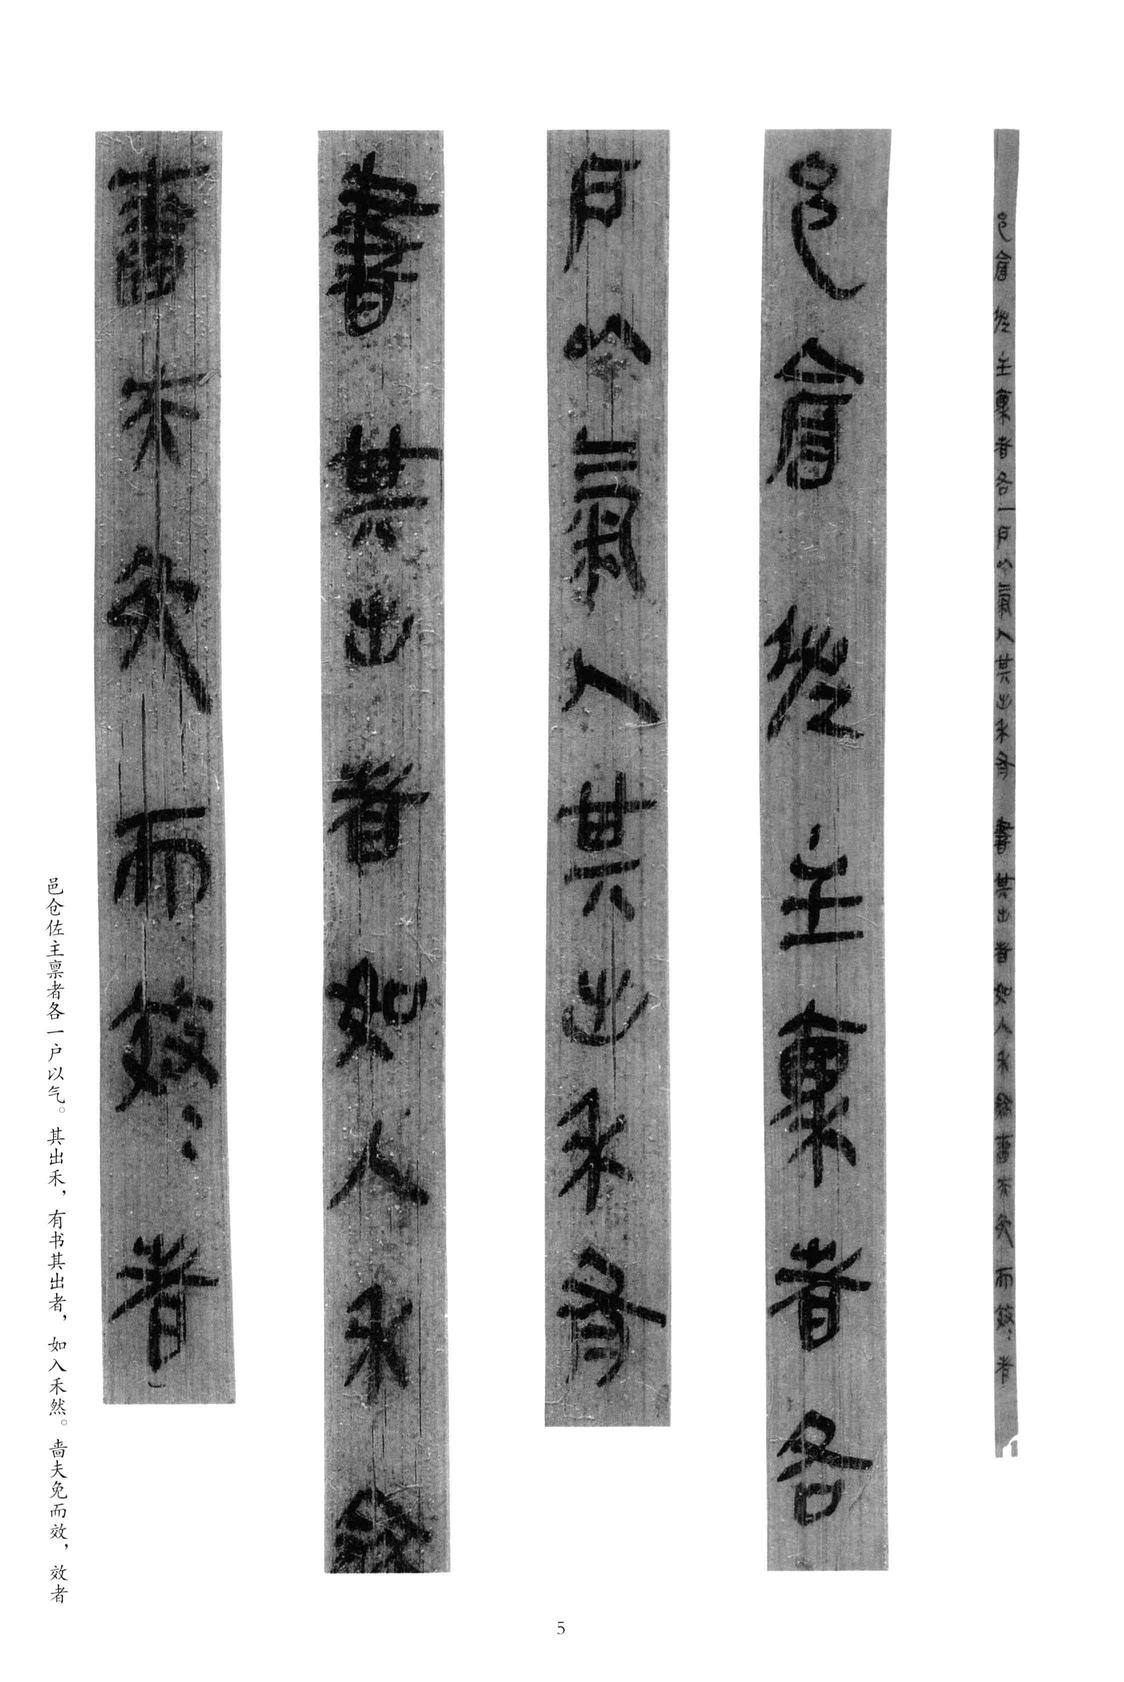 邑倉佐主稟者各一戶以氣人其出禾有書其出者如入禾然嗇夫免而效〓者
邑倉佐主稟者各
一戶以氣人其出禾有
書其出者如入禾然
嗇夫免而效〓者
邑仓佐主禀者各一户以气。其出禾，有书其出者，如入禾然。啬夫免而效，效者
5